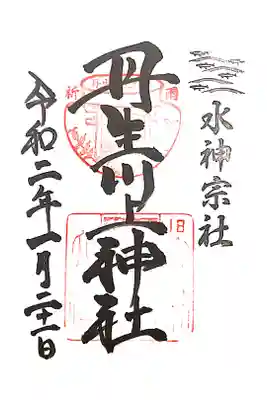 水神宗社
丹生川上神社
令和二年一月二十一日
祈
雨